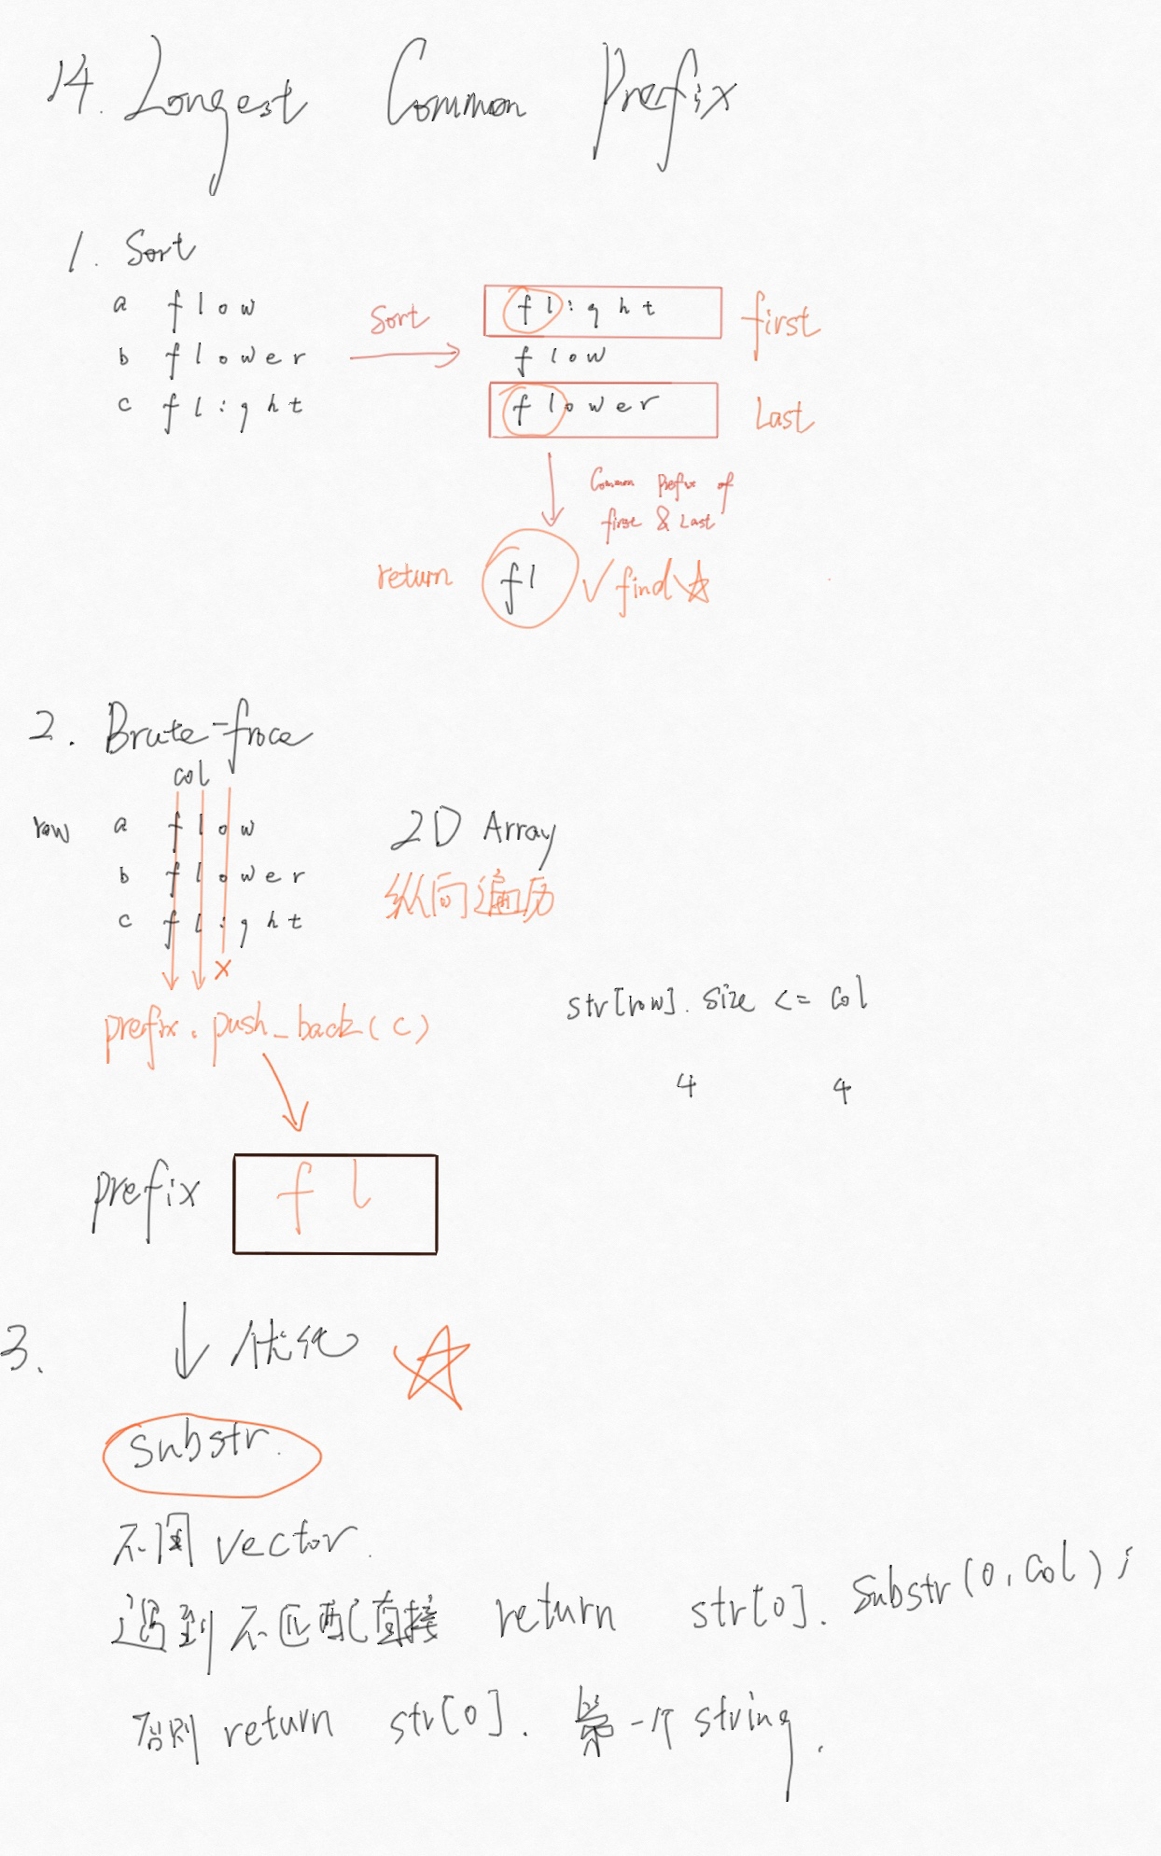 14. Longest Common Prefix
1. Sort
a flow
b flower
c flight
Sort
flight first
flow
flower Last
Common Prefix of
first & Last
return fl √ find ☆
2. Brute-froce
col
row a flow
b flower
c flight
2D Array
纵向遍历
x
prefix.push_back(c)
str[row].size <= col
4 4
prefix fl
3. 优化 ☆
substr.
不用 vector.
遇到不匹配直接 return str[0].substr(0,col);
否则 return str[0]. 第一个 string.